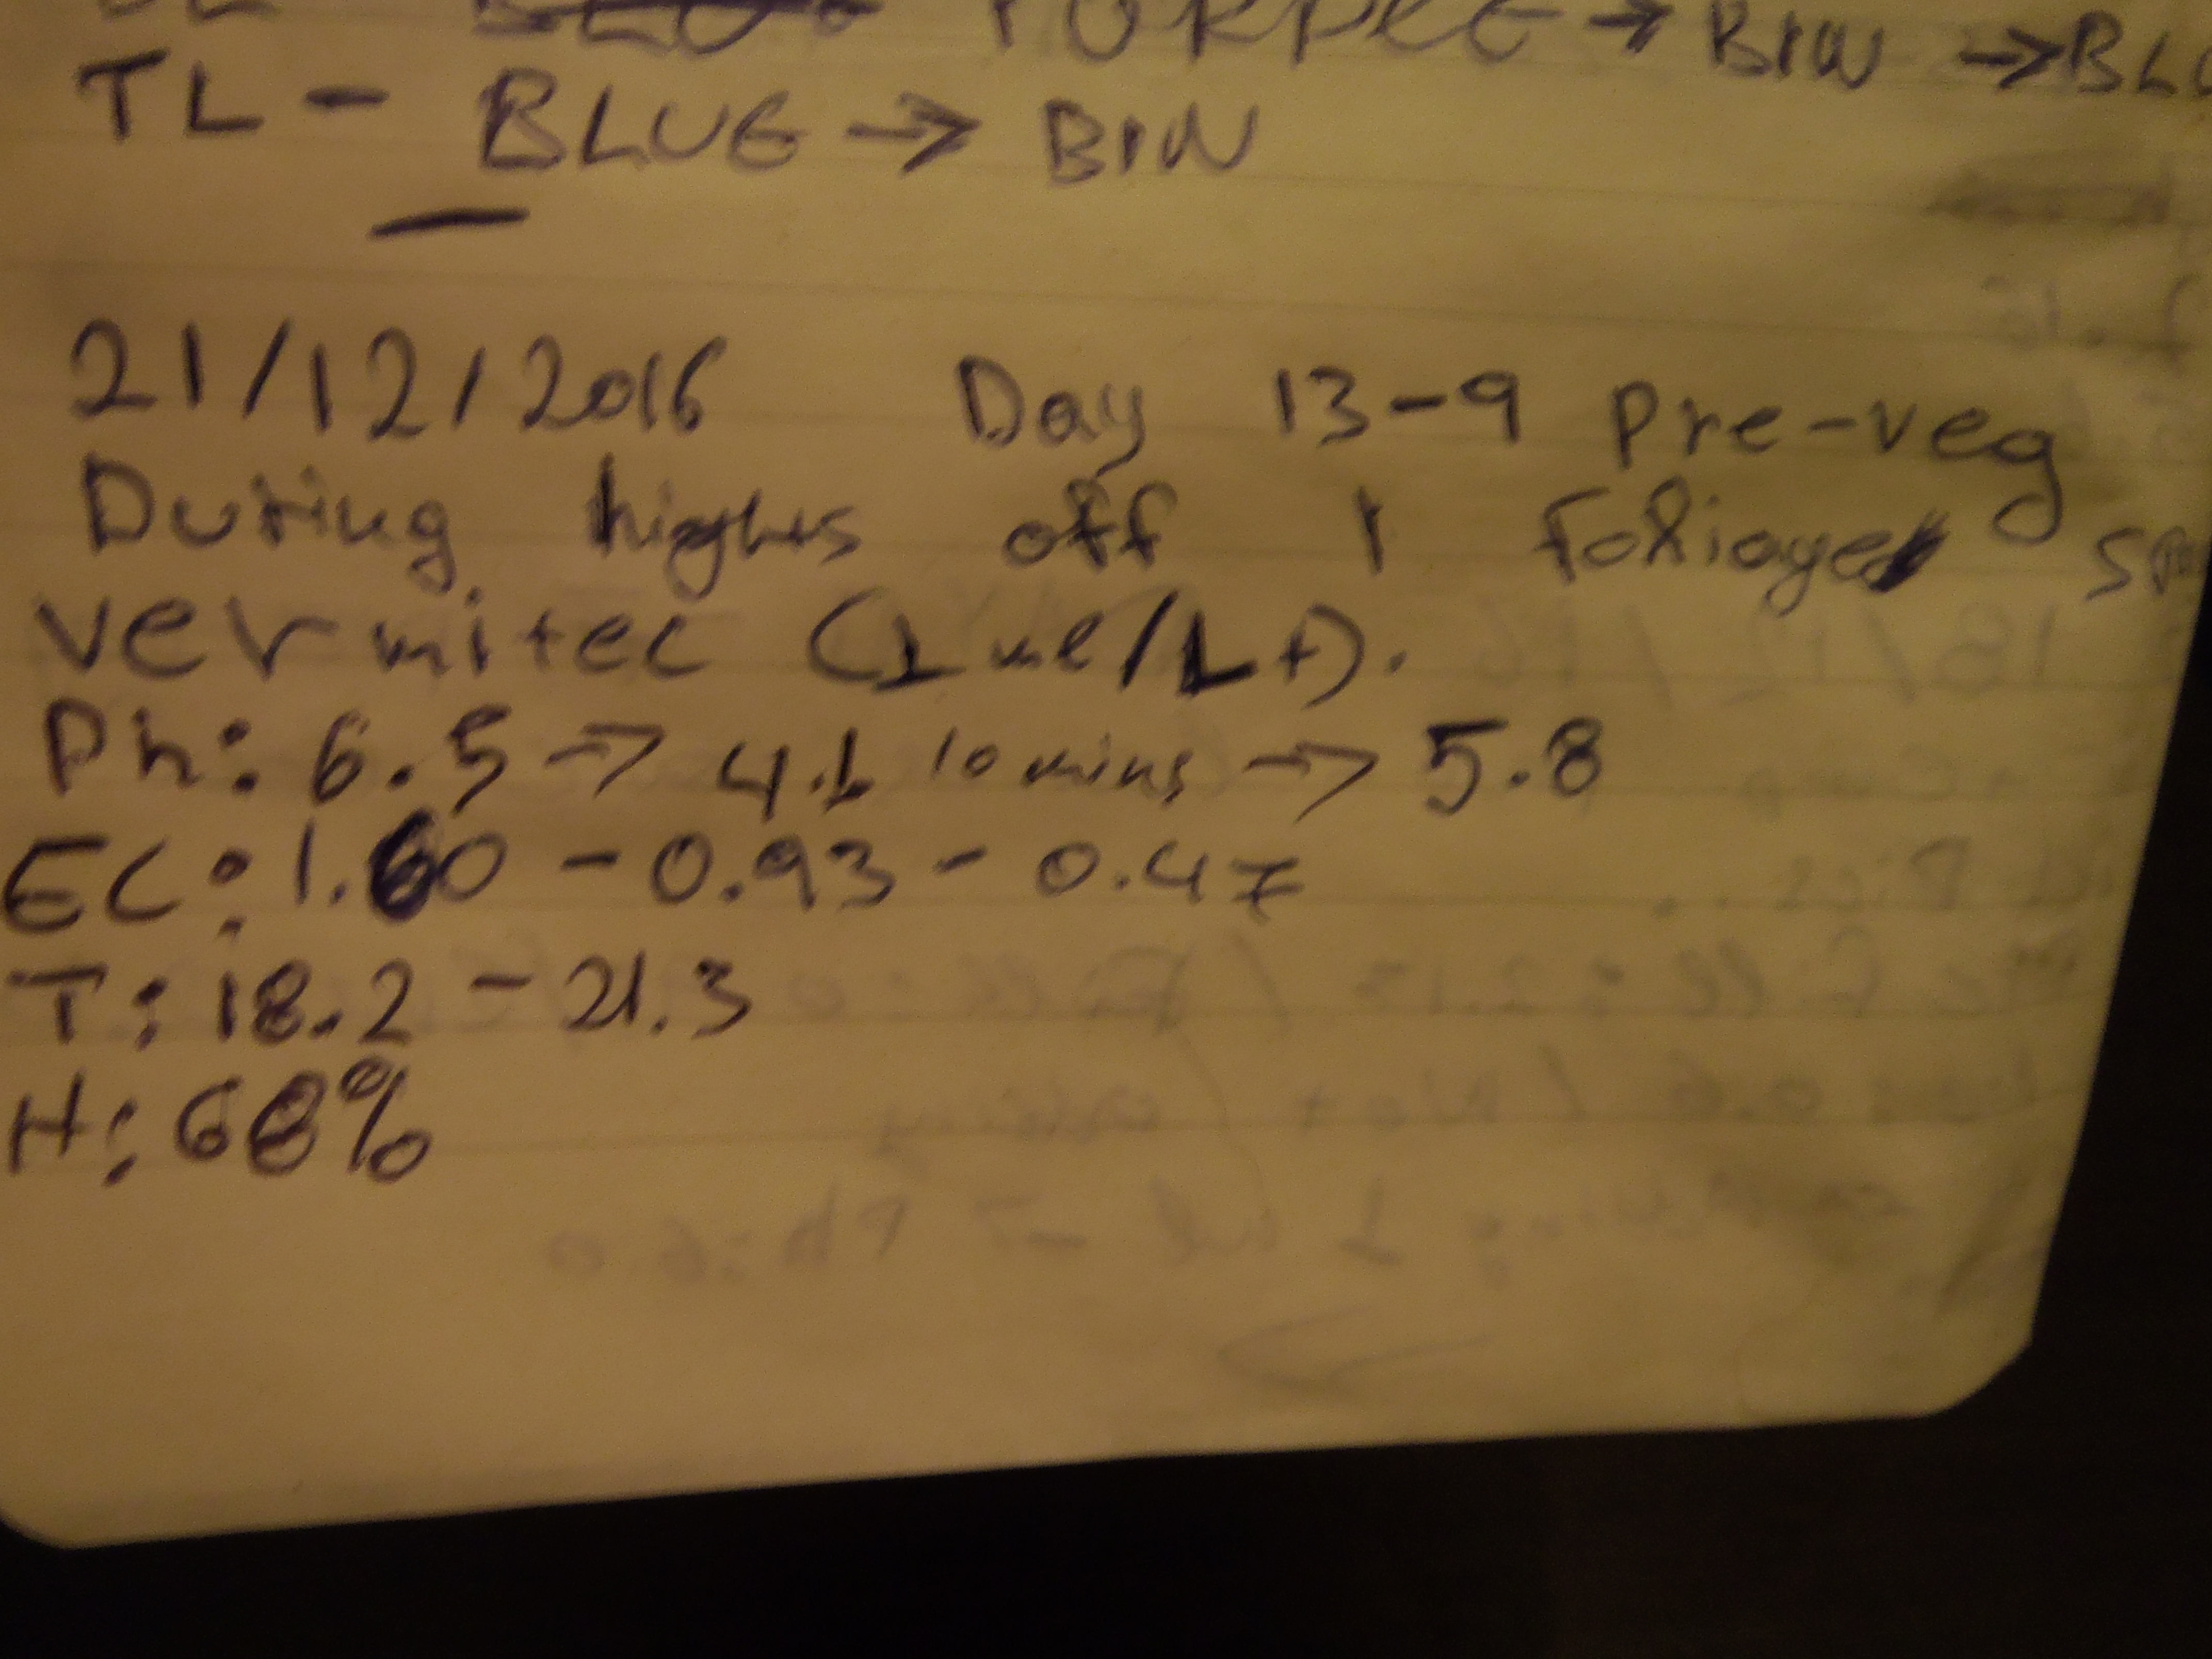 PURPLE → BIN → BLU
TL - BLUE → BIN
21/12/2016 Day 13-9 Pre-veg
During lights off 1 Foliage
vermitec (1ml/Lt).
Ph: 6.5 → 4.1 10 mins → 5.8
EC: 1.60 - 0.93 - 0.47
T: 18.2 - 21.3
H: 68%